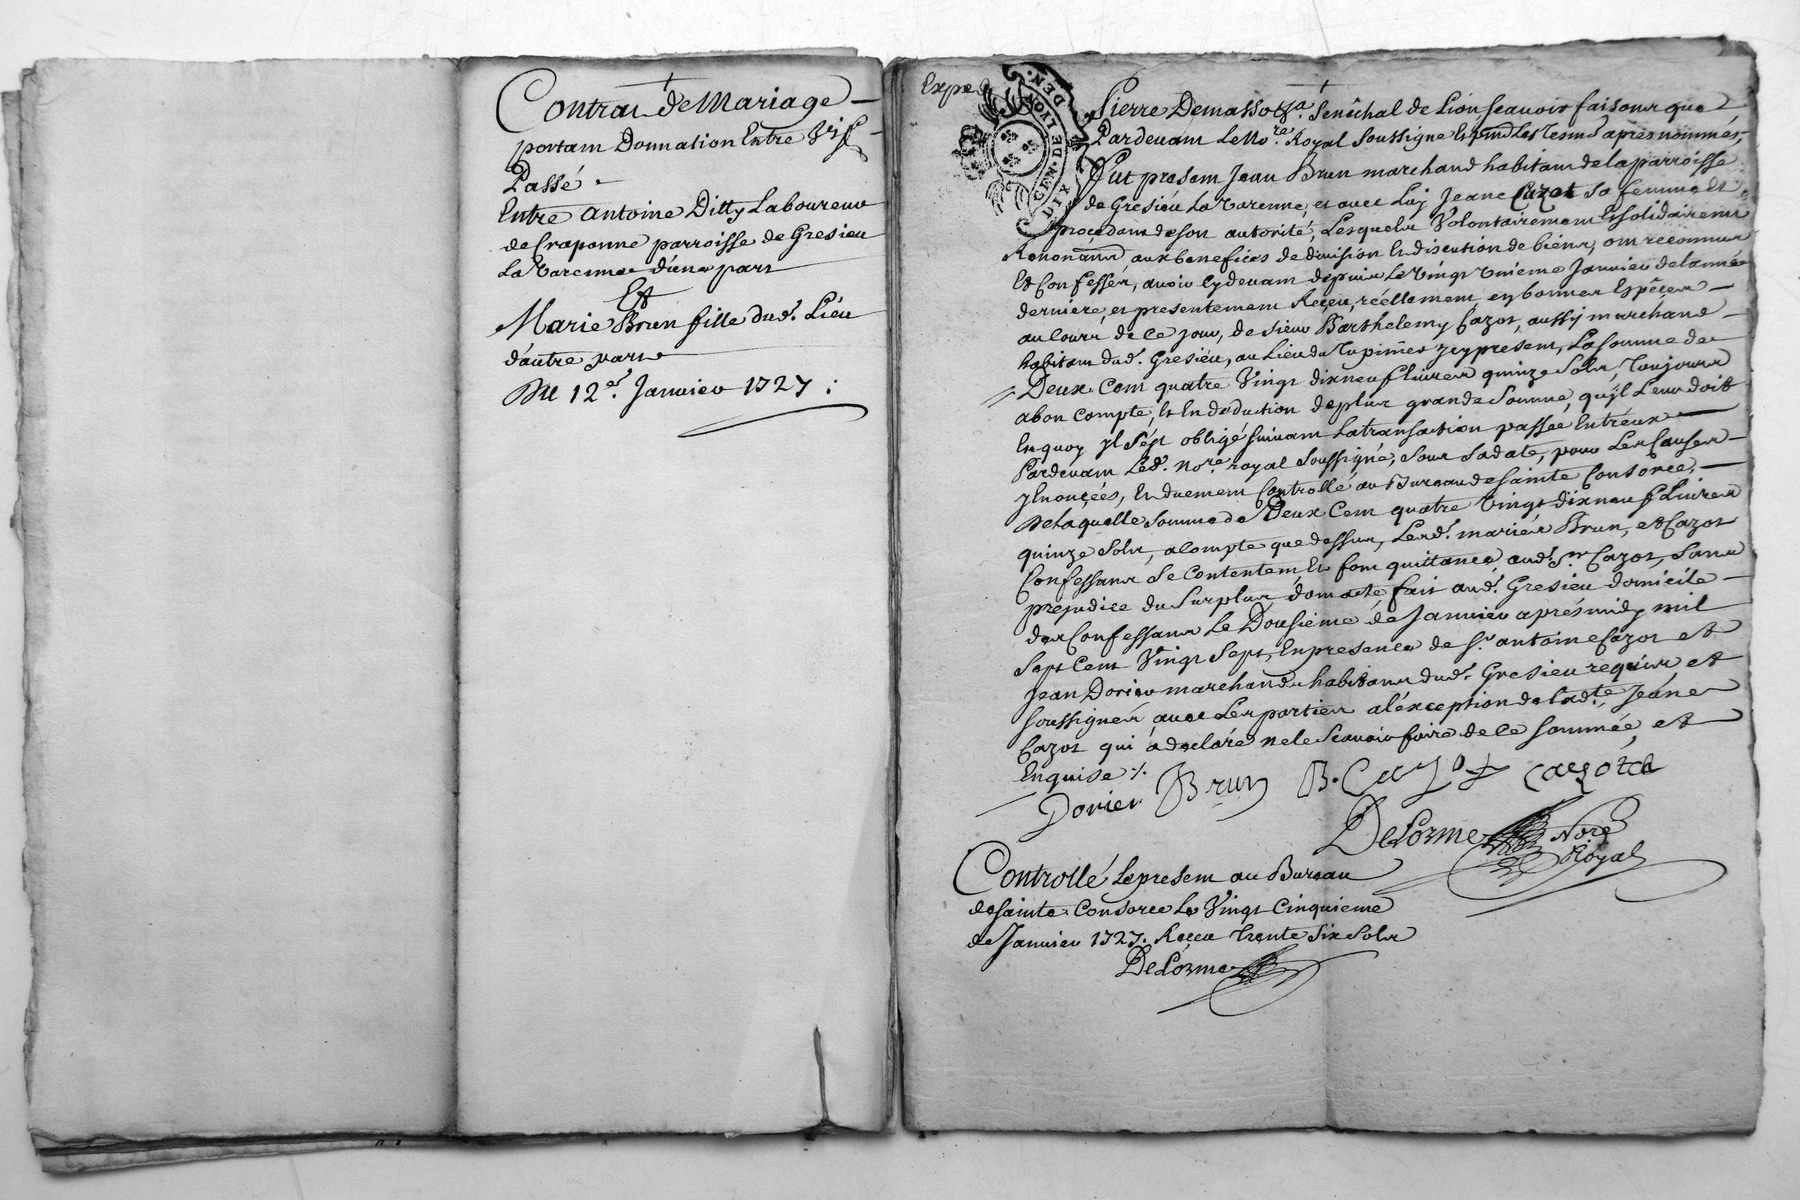 Contrat de Mariage
portant Donnation Entre Vifs
Passé
Entre Antoine Ditty Laboureur
de Craponne parroisse de Gresieu
La Varenne d'une part
Et
Marie Brun fille dud. Lieu
d'autre part
Du 12e. Janvier 1727 :
Expe
GEN. DE LYON
DIX DEN.
Pierre Demasso Senêchal de Lion, scavoir faisons que
Pardevant Le No.re Royal Soussigné Et p.nts Les Tesm.s aprés nommés,
Fut present Jean Brun marchand habitant de la parroisse
de Gresieu La Varenne, et avec Luy Jeane Cazot Sa femme Et
procedant de son autorité, Lesquels Volontairement Et solidairemt
Renonçant aux benefices de division Et discution de biens, ont reconnu
Et Confessés, avoir cydevant depuis Le Vingt Unieme Janvier de l'année
derniere, et presentement Reçeu, réellement, en bonnes Espêces
au Cours de ce jour, de Sieur Barthelemy Cazot, aussy marchand
habitant dud. Gresieu, au Lieu du Tupinier icy present, La somme de
Deux Cent quatre Vingt dixneuf Livres quinze Sols, Toujours
a bon compte, Et En deduction de plus grande Somme, qu'jl Leur doit
En quoy jl S'est obligé suivant La transaction passée Entreux
Pardevant Led. No.re royal Soussigné, Sous Sa date, pour Les Causes
y Enonçées, Et duement Controllé au Bureau de Sainte Consorce,
De laquelle Somme de Deux Cent quatre Vingt dixneuf Livres
quinze Sols, a Compte que dessus, Lesd. mariés Brun, et Cazot
Confessans Se Contentent, Et font quittance, aud. Sr. Cazot, Sans
prejudice du Surplus, dont acte, fait aud. Gresieu domicile
des Confessans Le Dousiéme de Janvier aprés midy mil
Sept Cent Vingt Sept, En presence de Sr. antoine Cazot et
Jean Dorier marchands habitans dud. Gresieu requis, et
Soussignés avec Les parties a l'exception de lad.te Jeane
Cazot qui à declaré ne le Scavoir faire de ce Sommée, et
Enquise ./.
Dorier Brun B. Cazot Cazot
DeLorme Nore
Royal
Controllé Le present au Bureau
de Sainte Consorce Le Vingt Cinquieme
de Janvier 1727. Reçeu Trente Six Sols
DeLorme